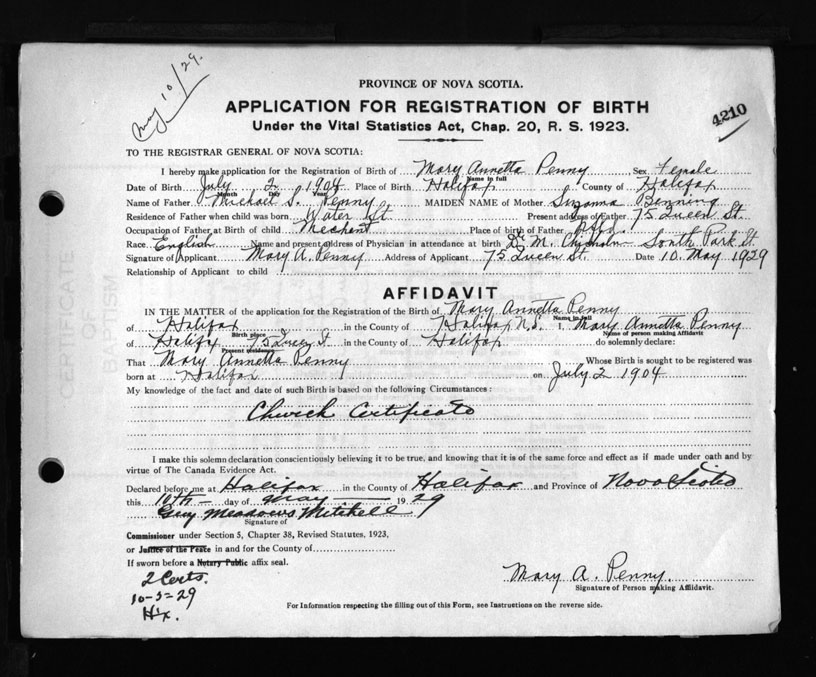 May 10/29.
PROVINCE OF NOVA SCOTIA.
APPLICATION FOR REGISTRATION OF BIRTH
4210
Under the Vital Statistics Act, Chap. 20, R. S. 1923.
TO THE REGISTRAR GENERAL OF NOVA SCOTIA:
I hereby make application for the Registration of Birth of Mary Annetta Penny Sex Female
Name in full
Date of Birth July 2 1904 Place of Birth Halifax County of Halifax
Month Day Year
Name of Father Michael S. Penny MAIDEN NAME of Mother Suzanna Benning
Residence of Father when child was born Water St Present address of Father 75 Queen St.
Occupation of Father at Birth of child Mechent Place of birth of Father Nfld.
Race English Name and present address of Physician in attendance at birth Dr M. South Park St.
Signature of Applicant Mary A. Penny Address of Applicant 75 Queen St. Date 10. May 1929
Relationship of Applicant to child
AFFIDAVIT
IN THE MATTER of the application for the Registration of the Birth of Mary Annetta Penny
Name in full
of Halifax in the County of Halifax N.S. I, Mary Annetta Penny
Birth place Name of person making Affidavit
of Halifax 75 Queen St in the County of Halifax do solemnly declare:
Present residence
That Mary Annetta Penny Whose Birth is sought to be registered was
born at Halifax on July 2 1904
My knowledge of the fact and date of such Birth is based on the following Circumstances:
Church Certificate
I make this solemn declaration conscientiously believing it to be true, and knowing that it is of the same force and effect as if made under oath and by
virtue of The Canada Evidence Act.
Declared before me at Halifax in the County of Halifax and Province of Nova Scotia
this 10th day of May 1929
Guy Meadows Mitchell
Signature of
Commissioner under Section 5, Chapter 38, Revised Statutes, 1923,
or Justice of the Peace in and for the County of
If sworn before a Notary Public affix seal.
2 Certs.
10-5-29
Hx.
Mary A. Penny.
Signature of Person making Affidavit.
For Information respecting the filling out of this Form, see Instructions on the reverse side.
CERTIFICATE
OF
BAPTISM